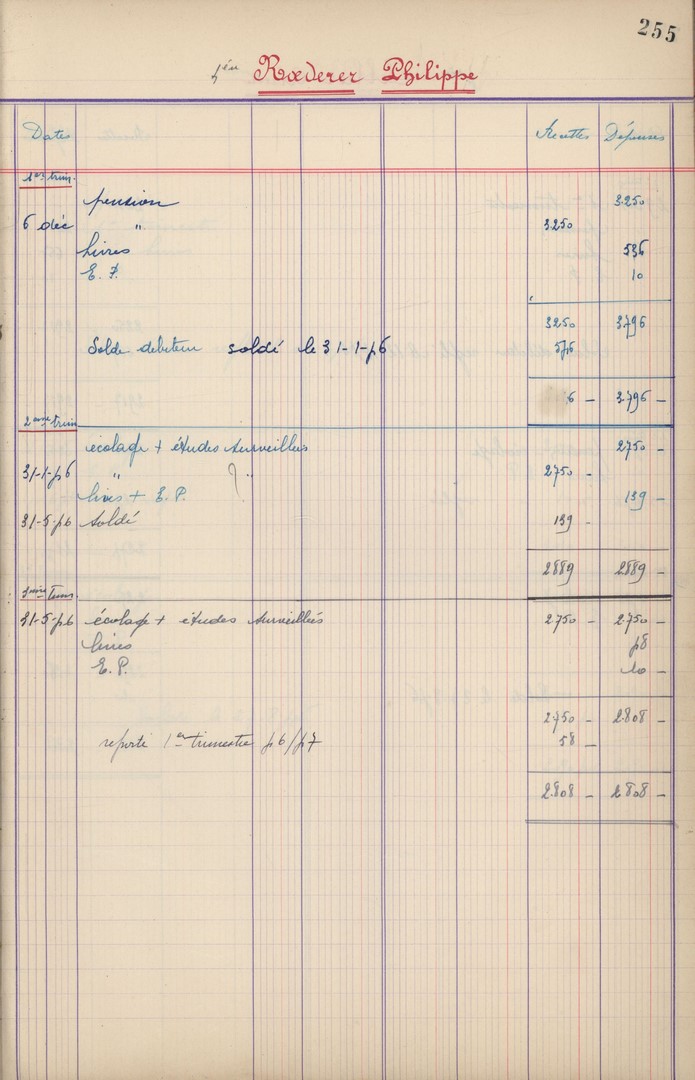 255
Rœderer Philippe
Dates Recettes Dépenses
1er trim.
pension 3.250
6 déc " 3.250
livres 536
E. P. 10
3250 3.796
Solde debiteur soldé le 31-1-56
6 - 3.796 -
2ème trim
écolage + études surveillées 2750 -
31-1-56 " " 2750 -
livres + E.P. 139 -
31-5-56 Soldé 139 -
2889 2889 -
3ème Trim.
31-5-56 écolage + études surveillés 2750 - 2750 -
livres 58
E.P.
2750 - 2.808 -
58 -
reporté 1er trimestre 56/57
2.808 - 2808 -